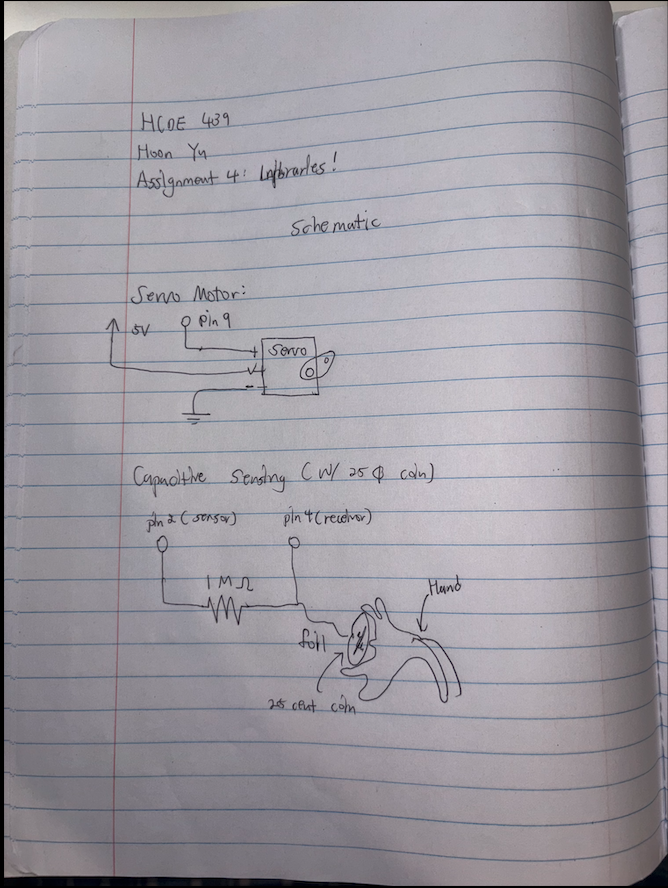 HCDE 439
Hoon Yu
Assignment 4:
Schematic
Servo Motor:
5V
pin 9
+
Servo
V
-
Capacitive Sensing (W/ 25 ¢ coin)
pin 2 (sensor)
pin 4 (receiver)
1 M Ω
Hand
foil
25 cent coin